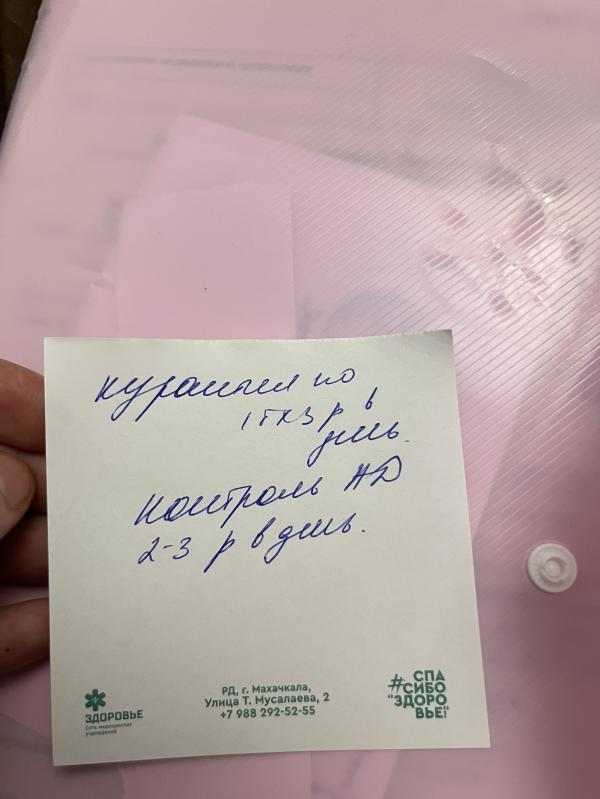 курантил по
1т х 3 р в
день.
Контроль АД
2-3 р в день.
ЗДОРОВЬЕ
Сеть медицинских
учреждений
РД, г. Махачкала,
Улица Т. Мусалаева, 2
+7 988 292-52-55
#СПА
СИБО
"ЗДОРО
ВЬЕ!"